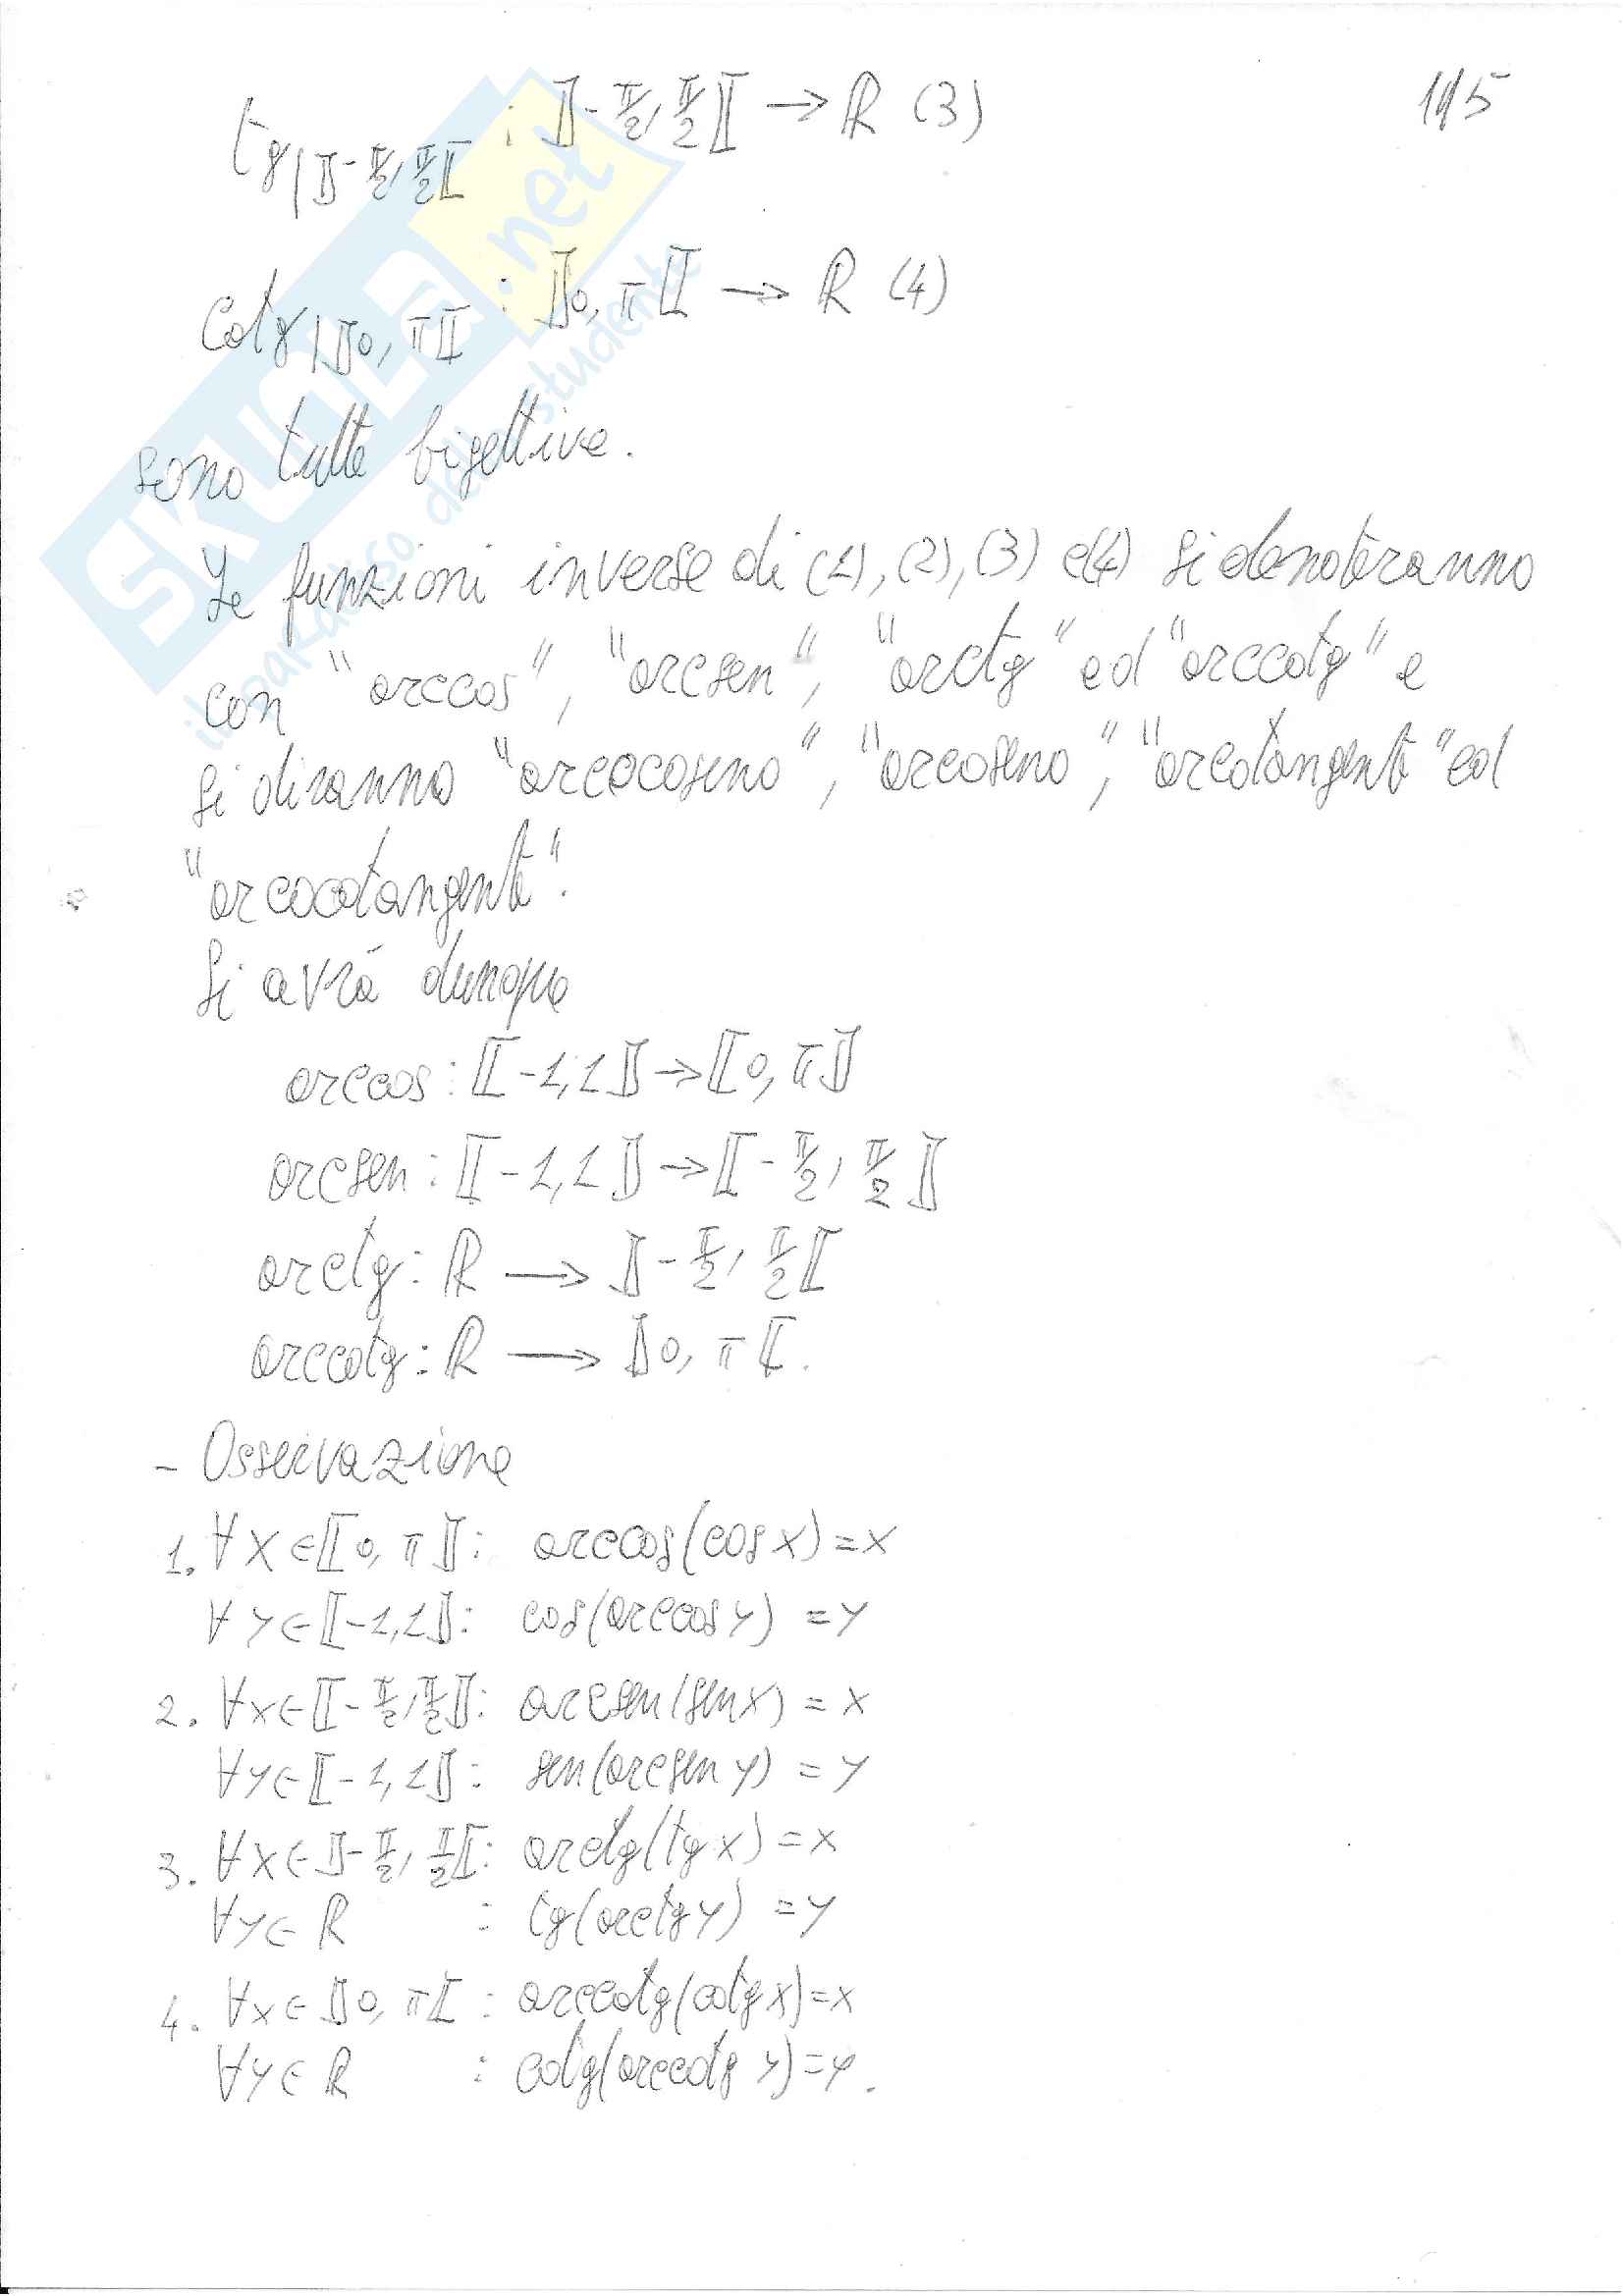 115
tg|⟧-π/2, π/2⟦ : ⟧-π/2, π/2⟦ → ℝ (3)
cotg|⟧0, π⟦ : ⟧0, π⟦ → ℝ (4)
sono tutte bigettive.
Le funzioni inverse di (1), (2), (3) e (4) si denoteranno
con "arccos", "arcsen", "arctg" ed "arccotg" e
si diranno "arcocoseno", "arcoseno", "arcotangente" ed
"arcocotangente".
Si avrá dunque
arccos : ⟦-1,1⟧ → ⟦0, π⟧
arcsen : ⟦-1,1⟧ → ⟦-π/2, π/2⟧
arctg : ℝ → ⟧-π/2, π/2⟦
arccotg : ℝ → ⟧0, π⟦.
- Osservazione
1. ∀x∈⟦0, π⟧ : arccos(cos x) = x
∀y∈⟦-1,1⟧ : cos(arccos y) = y
2. ∀x∈⟦-π/2, π/2⟧ : arcsen(sen x) = x
∀y∈⟦-1,1⟧ : sen(arcsen y) = y
3. ∀x∈⟧-π/2, π/2⟦ : arctg(tg x) = x
∀y∈ℝ : tg(arctg y) = y
4. ∀x∈⟧0, π⟦ : arccotg(cotg x) = x
∀y∈ℝ : cotg(arccotg y) = y.
SKUOLA.net
il paradiso dello studente